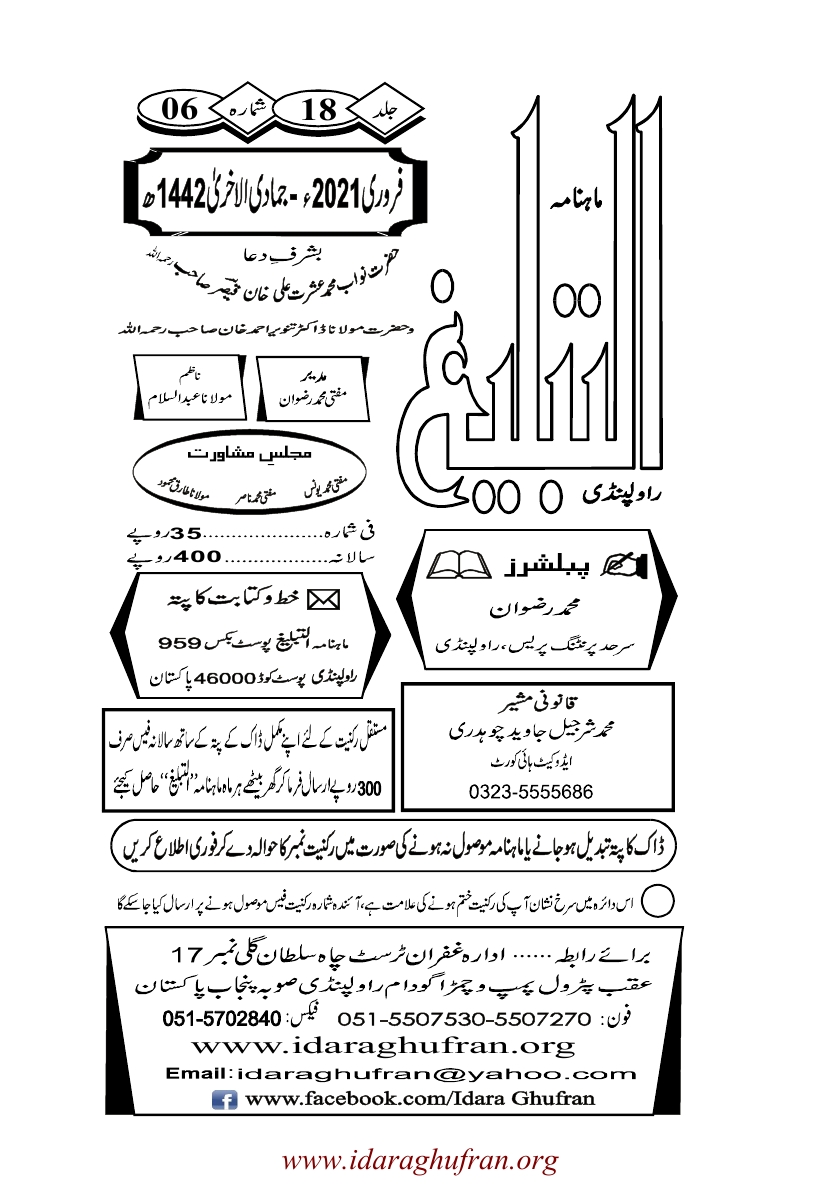 جلد 18 شمارہ 06
ماہنامہ
التبلیغ
راولپنڈی
فروری 2021ء - جمادی الاخریٰ 1442ھ
بشرفِ دعا
حضرت نواب محمد عشرت علی خان قیصر صاحب رحمہ اللہ
وحضرت مولانا ڈاکٹر تنویر احمد خان صاحب رحمہ اللہ
مدیر
مفتی محمد رضوان
ناظم
مولانا عبدالسلام
مجلسِ مشاورت
مفتی محمد یونس مفتی محمد ناصر مولانا طارق محمود
فی شمارہ.....................35روپے
سالانہ..................400روپے
پبلشرز
محمد رضوان
سرحد پرنٹنگ پریس، راولپنڈی
خط و کتابت کا پتہ
ماہنامہ التبلیغ پوسٹ بکس 959
راولپنڈی پوسٹ کوڈ 46000 پاکستان
قانونی مشیر
محمد شرجیل جاوید چوہدری
ایڈوکیٹ ہائی کورٹ
0323-5555686
مستقل رکنیت کے لئے اپنے مکمل ڈاک کے پتہ کے ساتھ سالانہ فیس صرف
300 روپے ارسال فرما کر گھر بیٹھے ہر ماہ ماہنامہ "التبلیغ" حاصل کیجئے
ڈاک کا پتہ تبدیل ہو جانے یا ماہنامہ موصول نہ ہونے کی صورت میں رکنیت نمبر کا حوالہ دے کر فوری اطلاع کریں
اس دائرہ میں سرخ نشان آپ کی رکنیت ختم ہونے کی علامت ہے، آئندہ شمارہ رکنیت فیس موصول ہونے پر ارسال کیا جا سکے گا
برائے رابطہ ...... ادارہ غفران ٹرسٹ چاہ سلطان گلی نمبر 17
عقب پٹرول پمپ و چمڑا گودام راولپنڈی صوبہ پنجاب پاکستان
فون: 051-5507530-5507270 فیکس: 051-5702840
www.idaraghufran.org
Email: idaraghufran@yahoo.com
www.facebook.com/Idara Ghufran
www.idaraghufran.org